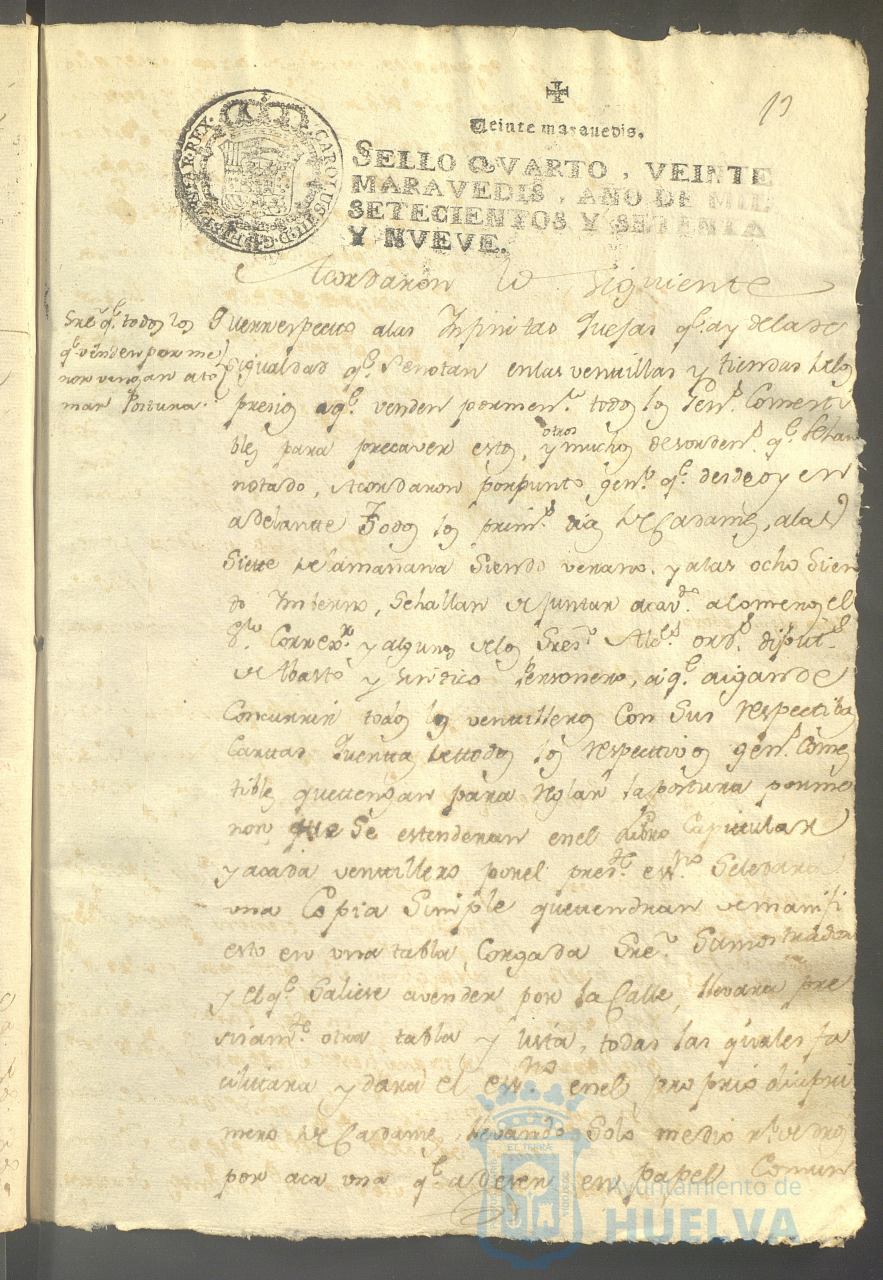 Veinte maravedis.
SELLO QVARTO, VEINTE
MARAVEDIS, AÑO DE MIL
SETECIENTOS Y SETENTA
Y NVEVE.
CAROLUS III D G HISPANIAR REX
Acordaron lo Siguiente
Sre. q.e todos los
q.e venden por me
nor vengan a to
mar Postura.
Que en respecto a las Infinitas Quejas q.e ay de la de
sigualdad q.e Se notan en las ventillas y tiendas de los
presios a q.e venden por men.r todos los Gen.s Comesti
bles para precaver estos, y otros muchos desorden.s q.e se han
notado, Acordaron por punto gen.l q.e desde oy en
adelante Todos los prim.s dias de Cada mes, a las
Siete de la mañana Siendo verano, y a las ocho Sien
do Imbierno, Se hallan de juntar a cav.do a lo menos el
S.or Correx.or y alguno de los Sres. Alc.s ord.s diput.s
de Abasto y Sindico Personero, a q.e aigan de
Concurrir todos los ventilleros Con Sus respectibas
Cartas Quenta de todos los respectivos gen.s Comes
tibles que tengan para reglar la postura por me
nor que Se estenderan en el Libro Capitular
y a cada ventillero por el pres.te ess.no Se le dara
una Copia Simple que tendran de manifi
esto en una tabla, Corgada Sre. Su mostrador
y el q.e Saliese a vender por la Calle, llevara pre
sisam.te otra tabla y lista, todas las quales fa
cilitara y dara el ess.no en el proprio dia pri
mero de Cada mes, llevando Solo medio r.l de dros
por aca una q.e a de ser en papel Comun
Ayuntamiento de
HUELVA